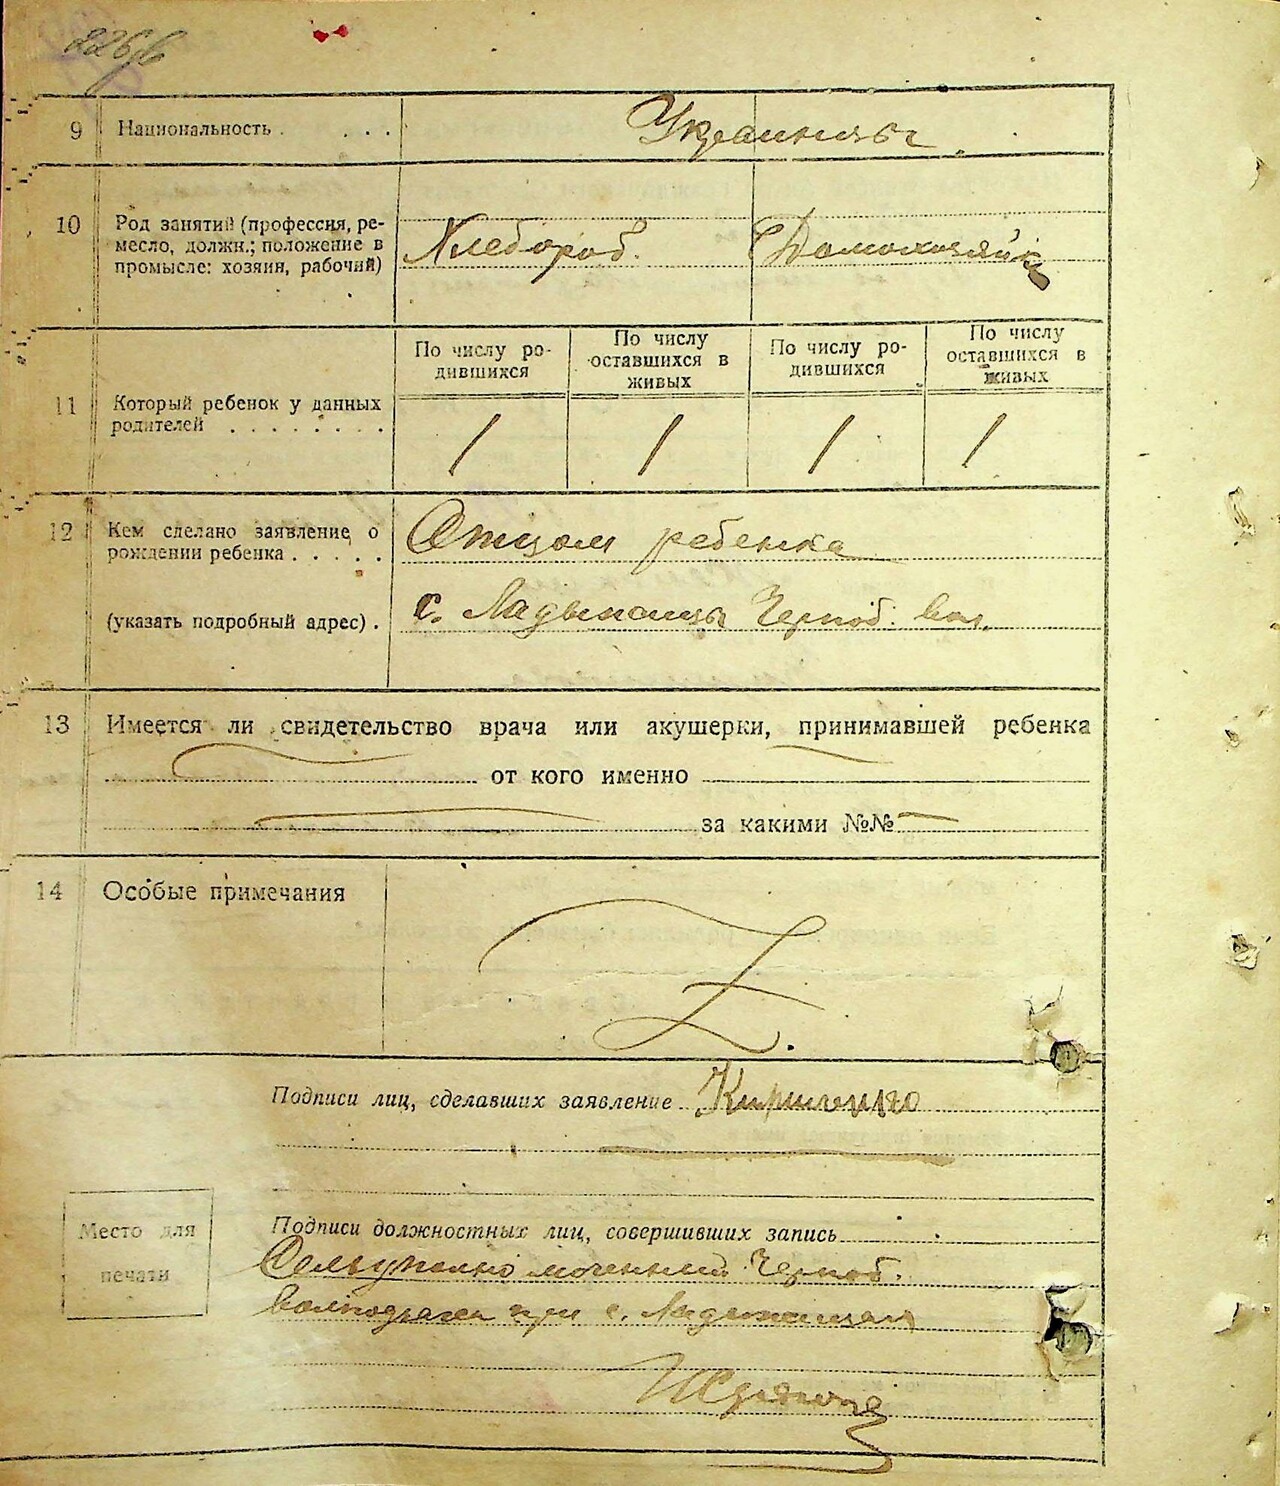 226 об
9 Национальность . . . . Украинцы
10 Род занятий (профессия, ре-
месло, должн.; положение в
промысле: хозяин, рабочий)
Хлебороб. Домохозяйк
По числу ро-
дившихся
По числу
оставшихся в
живых
По числу ро-
дившихся
По числу
оставшихся в
живых
11 Который ребенок у данных
родителей . . . . . . . .
1 1 1 1
12 Кем сделано заявление о
рождении ребенка . . . . .
Отцом ребенка
(указать подробный адрес) . с. Ладыжицы Черноб. вол.
13 Имеется ли свидетельство врача или акушерки, принимавшей ребенка
от кого именно
за какими №№
14 Особые примечания
Подписи лиц, сделавших заявление Кириченко
Место для
печати
Подписи должностных лиц, совершивших запись
Сельуполно моченний Черноб.
при с. Ладыжицах